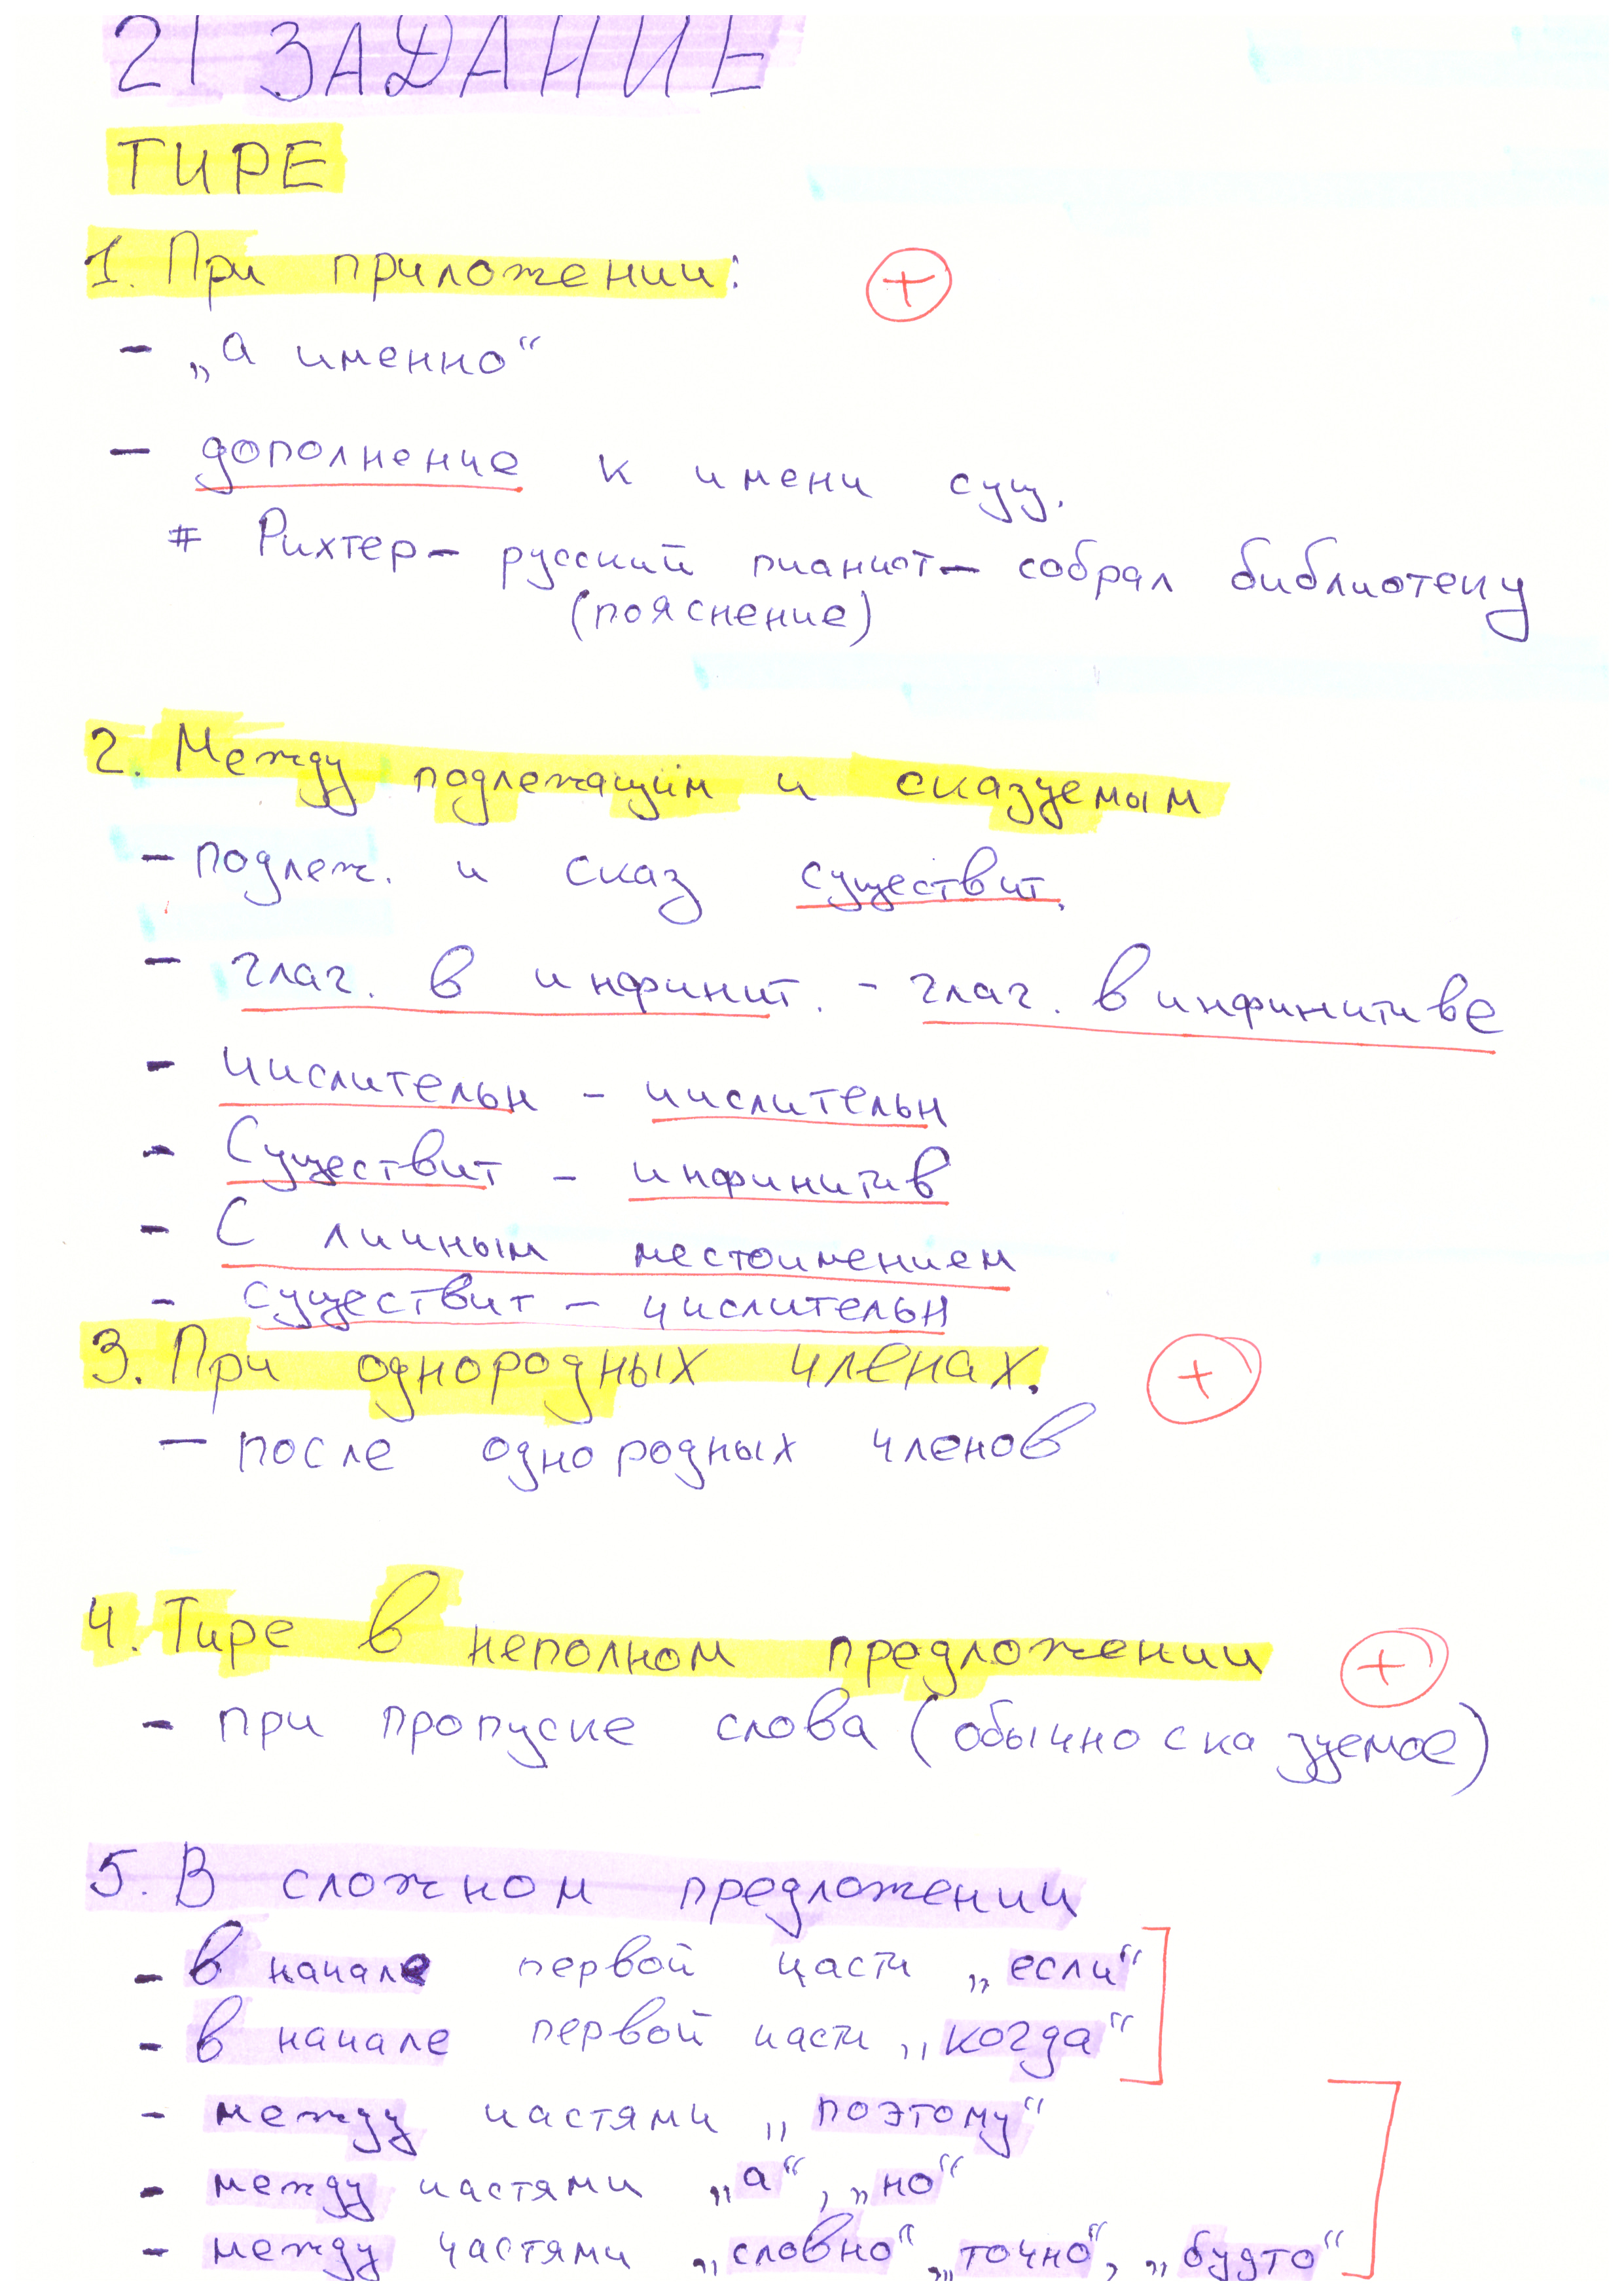 21 ЗАДАНИЕ
ТИРЕ
1. При приложении:
- „а именно“
- дополнение к имени сущ.
# Рихтер – русский пианист – собрал библиотеку
(пояснение)
2. Между подлежащим и сказуемым
- подлеж. и сказ существит.
- глаг. в инфинит. - глаг. в инфинитиве
- числительн - числительн
- Существит - инфинитив
- С личным местоимением
- существит - числительн
3. При однородных членах.
- после однородных членов
4. Тире в неполном предложении
- при пропуске слова (обычно сказуемое)
5. В сложном предложении
- в начале первой части „если“
- в начале первой части „когда“
- между частями „поэтому“
- между частями „а“, „но“
- между частями „словно“, „точно“, „будто“